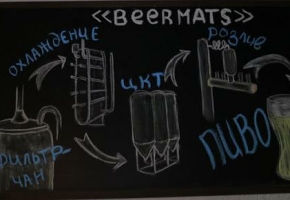 <<BEERMATS>>
ОХЛАЖДЕНИЕ
ЦКТ
РОЗЛИВ
ФИЛЬТР-
ЧАН
ПИВО